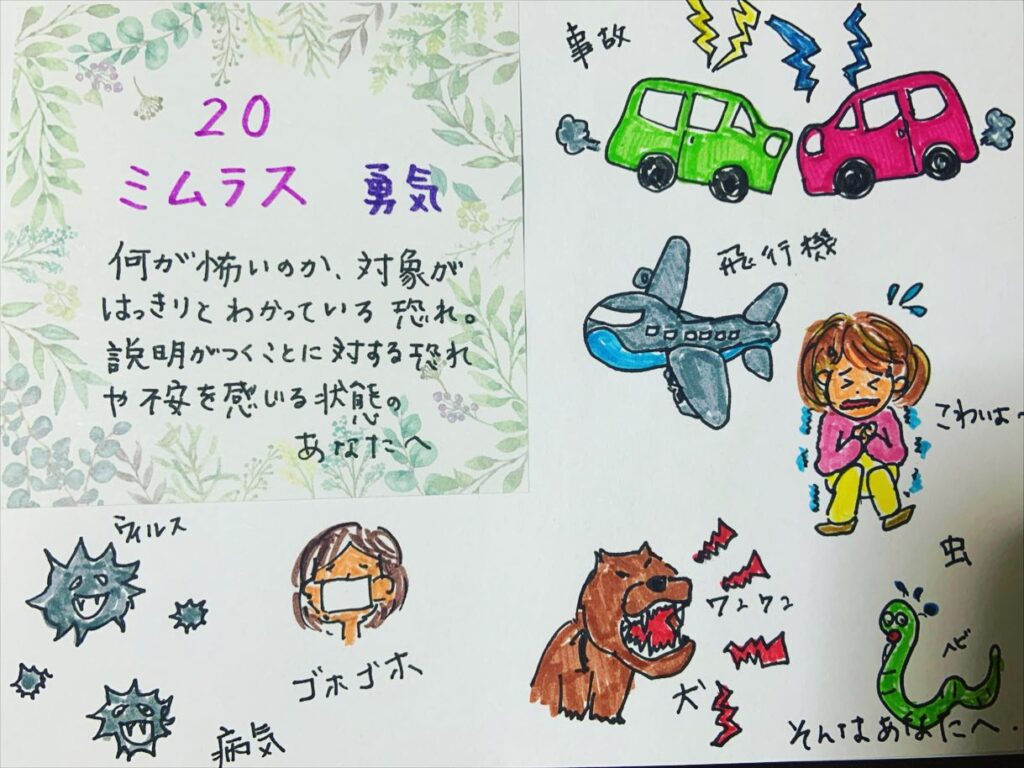 20
ミムラス 勇気
何が怖いのか、対象が
はっきりとわかっている恐れ。
説明がつくことに対する恐れ
や不安を感じる状態の
あなたへ
事故
飛行機
こわいよ〜
ウィルス
ゴホゴホ
病気
ワンワン
犬
虫
ヘビ
そんなあなたへ.